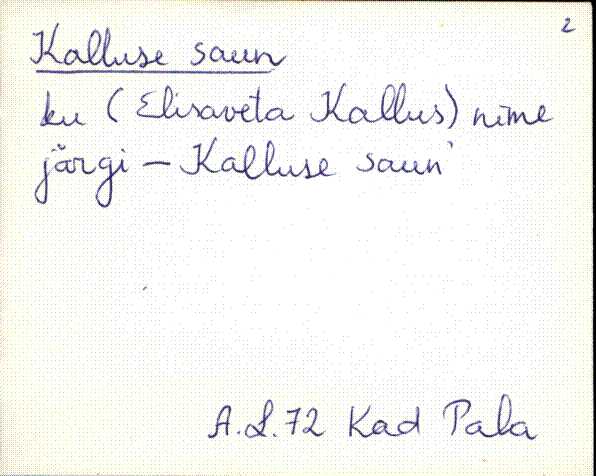 2
Kalluse saun
ku (Elisaveta Kallus) nime
järgi – Kalluse saun'
A.L.72 Kad Pala